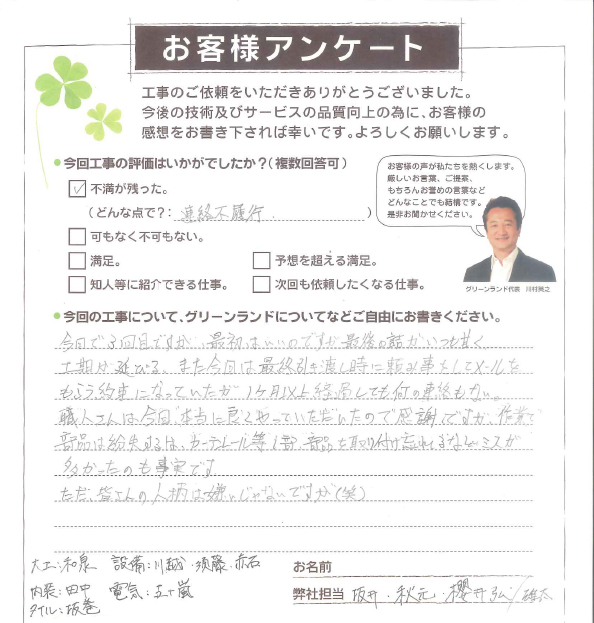 お客様アンケート
工事のご依頼をいただきありがとうございました。
今後の技術及びサービスの品質向上の為に、お客様の
感想をお書き下されば幸いです。よろしくお願いします。
今回工事の評価はいかがでしたか?(複数回答可)
不満が残った。
(どんな点で?: 連絡不履行 )
可もなく不可もない。
満足。
予想を超える満足。
知人等に紹介できる仕事。
次回も依頼したくなる仕事。
お客様の声が私たちを熱くします。
厳しいお言葉、ご提案、
もちろんお誉めの言葉など
どんなことでも結構です。
是非お聞かせください。
グリーンランド代表 川村純之
今回の工事について、グリーンランドについてなどご自由にお書きください。
今回で3回目ですが、最初はいいのですが最後の詰がいつも甘く
工期は延びる、また今回は最終引き渡し時に頼み事としてメールを
もらう約束になっていたが1ヶ月以上経過しても何の連絡もない。
職人さんは今回、本当に良くやっていただいたので感謝ですが、作業で
部品は紛失するは、カーテンレール等1部、部品を取り付け忘れるなどミスが
多かったのも事実です
ただ、皆さんの人柄は嫌いじゃないですが(笑)
大工:和泉 設備:川越・須藤・赤石
内装:田中 電気:五十嵐
タイル:坂巻
お名前
弊社担当 坂井・秋元・櫻井弘/雄太